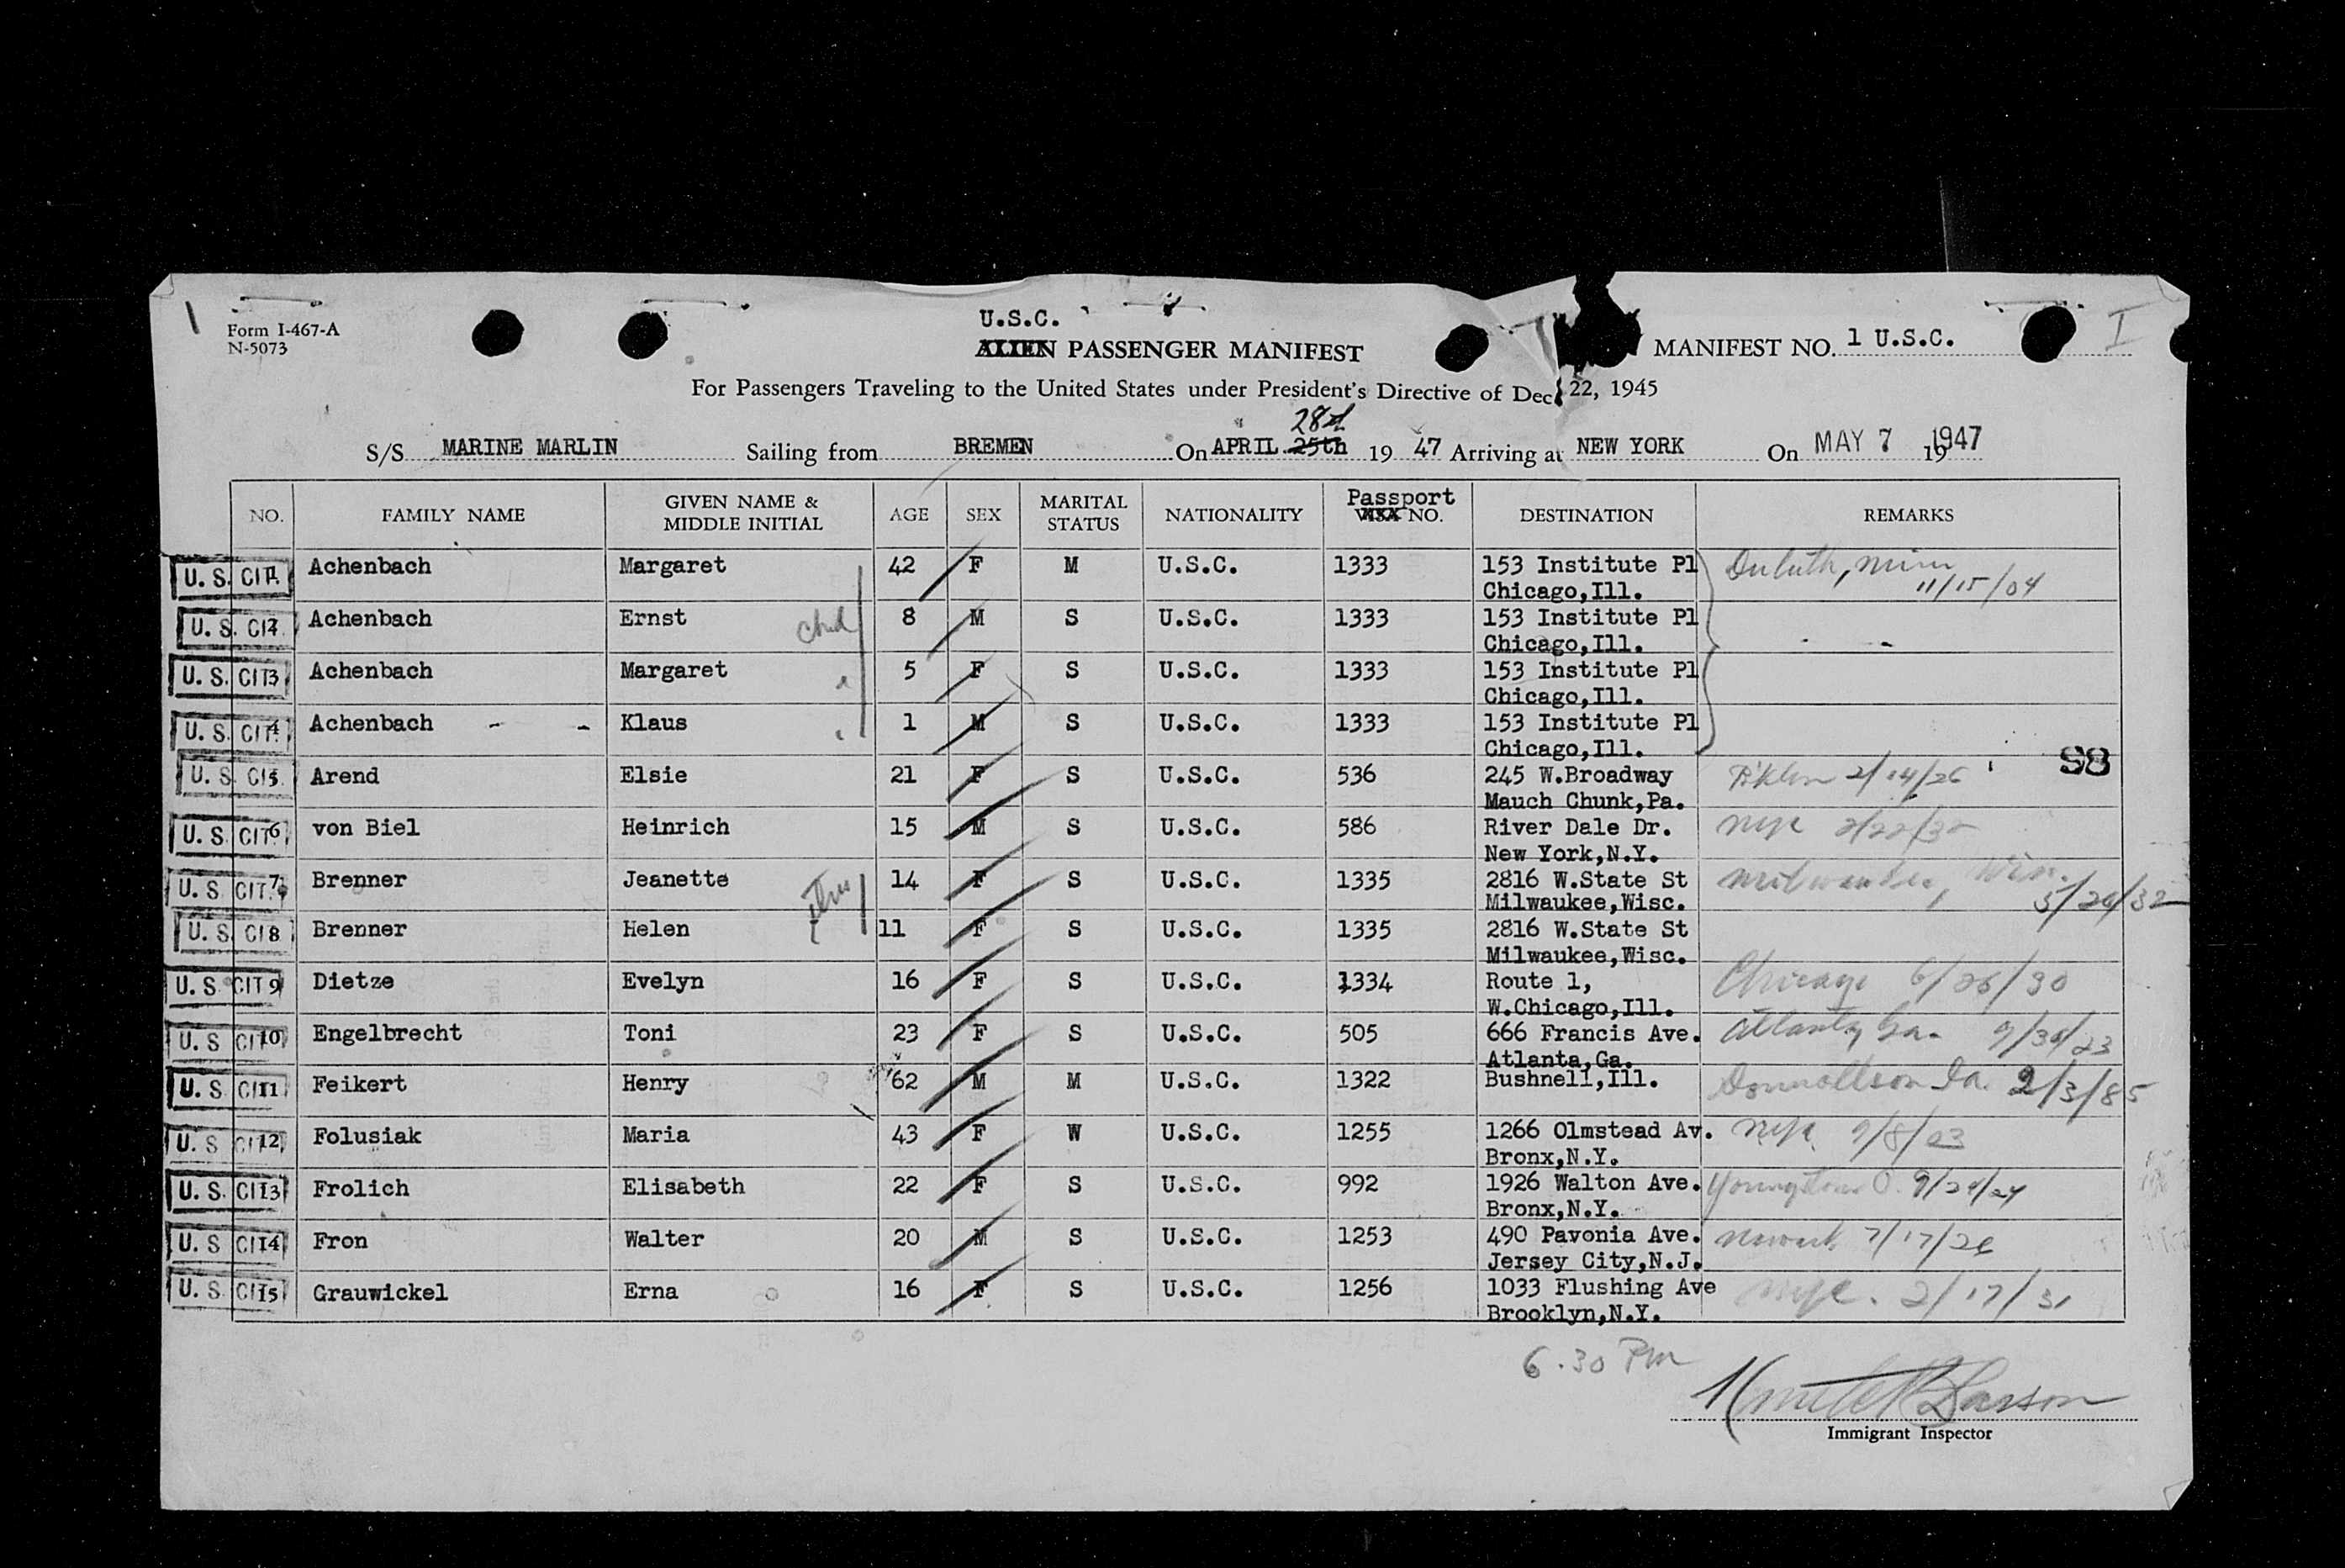 Form I-467-A
N-5073
U.S.C.
ALIEN PASSENGER MANIFEST
MANIFEST NO. 1 U.S.C. I
For Passengers Traveling to the United States under President's Directive of Dec. 22, 1945
28th
S/S MARINE MARLIN Sailing from BREMEN On APRIL 25th 19 47 Arriving at NEW YORK On MAY 7 19 1947
NO. FAMILY NAME GIVEN NAME & MIDDLE INITIAL AGE SEX MARITAL STATUS NATIONALITY Passport VISA NO. DESTINATION REMARKS
U. S. CIT. 1 Achenbach Margaret 42 F M U.S.C. 1333 153 Institute Pl Duluth, Minn
Chicago,Ill. 11/15/04
U. S. CIT. 2 Achenbach Ernst 8 M S U.S.C. 1333 153 Institute Pl
Chicago,Ill.
U. S. CIT. 3 Achenbach Margaret 5 F S U.S.C. 1333 153 Institute Pl
Chicago,Ill.
U. S. CIT. 4 Achenbach - - Klaus 1 M S U.S.C. 1333 153 Institute Pl
Chicago,Ill.
98
U. S. CIT. 5 Arend Elsie 21 F S U.S.C. 536 245 W.Broadway B'klyn 2/14/26
Mauch Chunk,Pa.
U. S. CIT. 6 von Biel Heinrich 15 M S U.S.C. 586 River Dale Dr. NYC 2/22/32
New York,N.Y.
U. S. CIT. 7 Brenner Jeanette 14 F S U.S.C. 1335 2816 W.State St Milwaukee, Wis.
Milwaukee,Wisc. 5/26/32
U. S. CIT. 8 Brenner Helen 11 F S U.S.C. 1335 2816 W.State St
Milwaukee,Wisc.
U. S. CIT. 9 Dietze Evelyn 16 F S U.S.C. 1334 Route 1, Chicago 6/26/30
W.Chicago,Ill.
U. S. CIT. 10 Engelbrecht Toni 23 F S U.S.C. 505 666 Francis Ave. Atlanta, Ga. 9/30/23
Atlanta,Ga.
U. S. CIT. 11 Feikert Henry 62 M M U.S.C. 1322 Bushnell,Ill. Donnellson Ia. 2/3/85
U. S. CIT. 12 Folusiak Maria 43 F W U.S.C. 1255 1266 Olmstead Av. NYC 9/8/03
Bronx,N.Y.
U. S. CIT. 13 Frolich Elisabeth 22 F S U.S.C. 992 1926 Walton Ave. Youngstown O. 9/24/24
Bronx,N.Y.
U. S. CIT. 14 Fron Walter 20 M S U.S.C. 1253 490 Pavonia Ave. Newark 7/17/26
Jersey City,N.J.
U. S. CIT. 15 Grauwickel Erna 16 F S U.S.C. 1256 1033 Flushing Ave NYC. 2/17/31
Brooklyn,N.Y.
6.30 PM
Larson
Immigrant Inspector